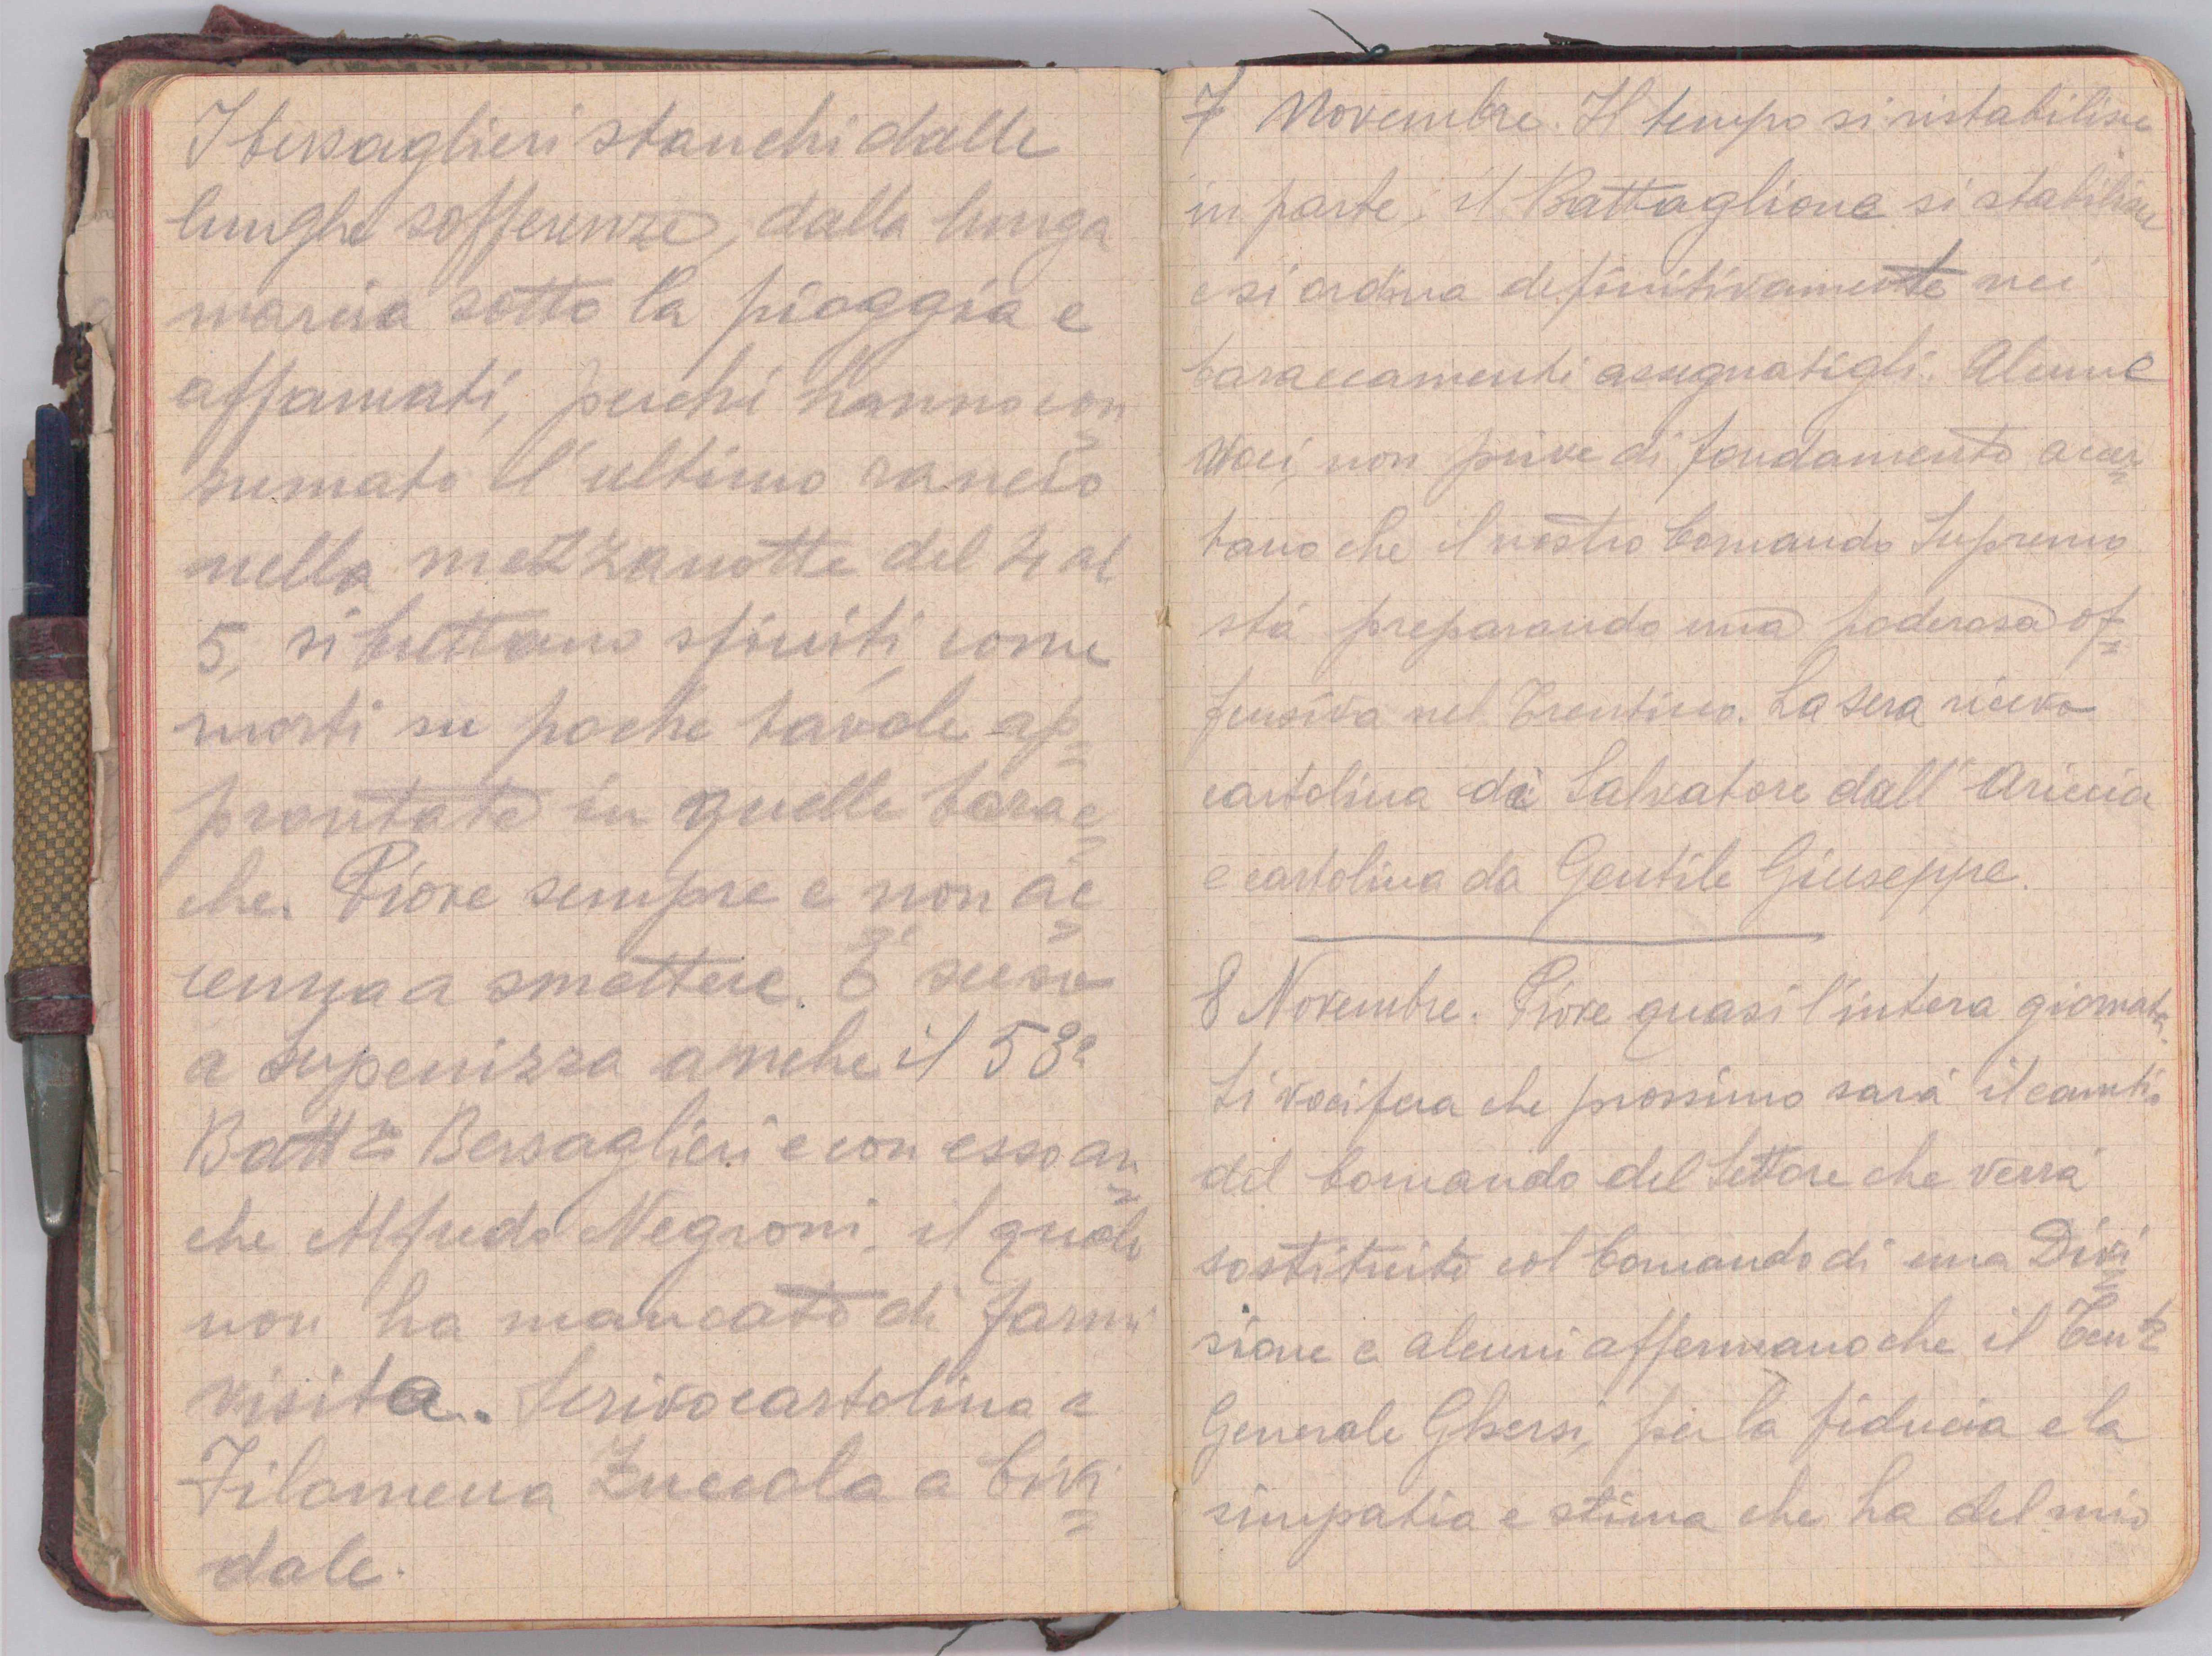 I bersaglieri stanchi dalle
lunghe sofferenze, dalla lunga
marcia sotto la pioggia e
affamati, perchè hanno con=
sumato l'ultimo rancio
nella mezzanotte del 4 al
5, si buttano sfiniti, come
morti su poche tavole ap=
prontate in quelle barac=
che. Piove sempre e non ac=
cenna a smettere. È sceso
a Supenizza anche il 53º
Battº Bersaglieri e con esso an=
che Alfredo Negroni, il quale
non ha mancato di farmi
visita. Scrivo cartolina a
Filomena Zuccola a Civi=
dale.
7 Novembre. Il tempo si ristabilisce
in parte; il Battaglione si stabilisce
e si ordina definitivamente nei
baraccamenti assegnatigli. Alcune
voci, non prive di fondamento accer=
tano che il nostro Comando Supremo
stà preparando una poderosa of=
fensiva nel Trentino. La sera ricevo
cartolina di Salvatore dall'Ariccia
e cartolina da Gentile Giuseppe.
8 Novembre. Piove quasi l'intera giornata.
Si vocifera che prossimo sarà il cambio
del Comando del Settore che verrà
sostituito col Comando di una Divi=
sione e alcuni affermano che il Tente
Generale Ghersi, per la fiducia e la
simpatia e stima che ha del mio